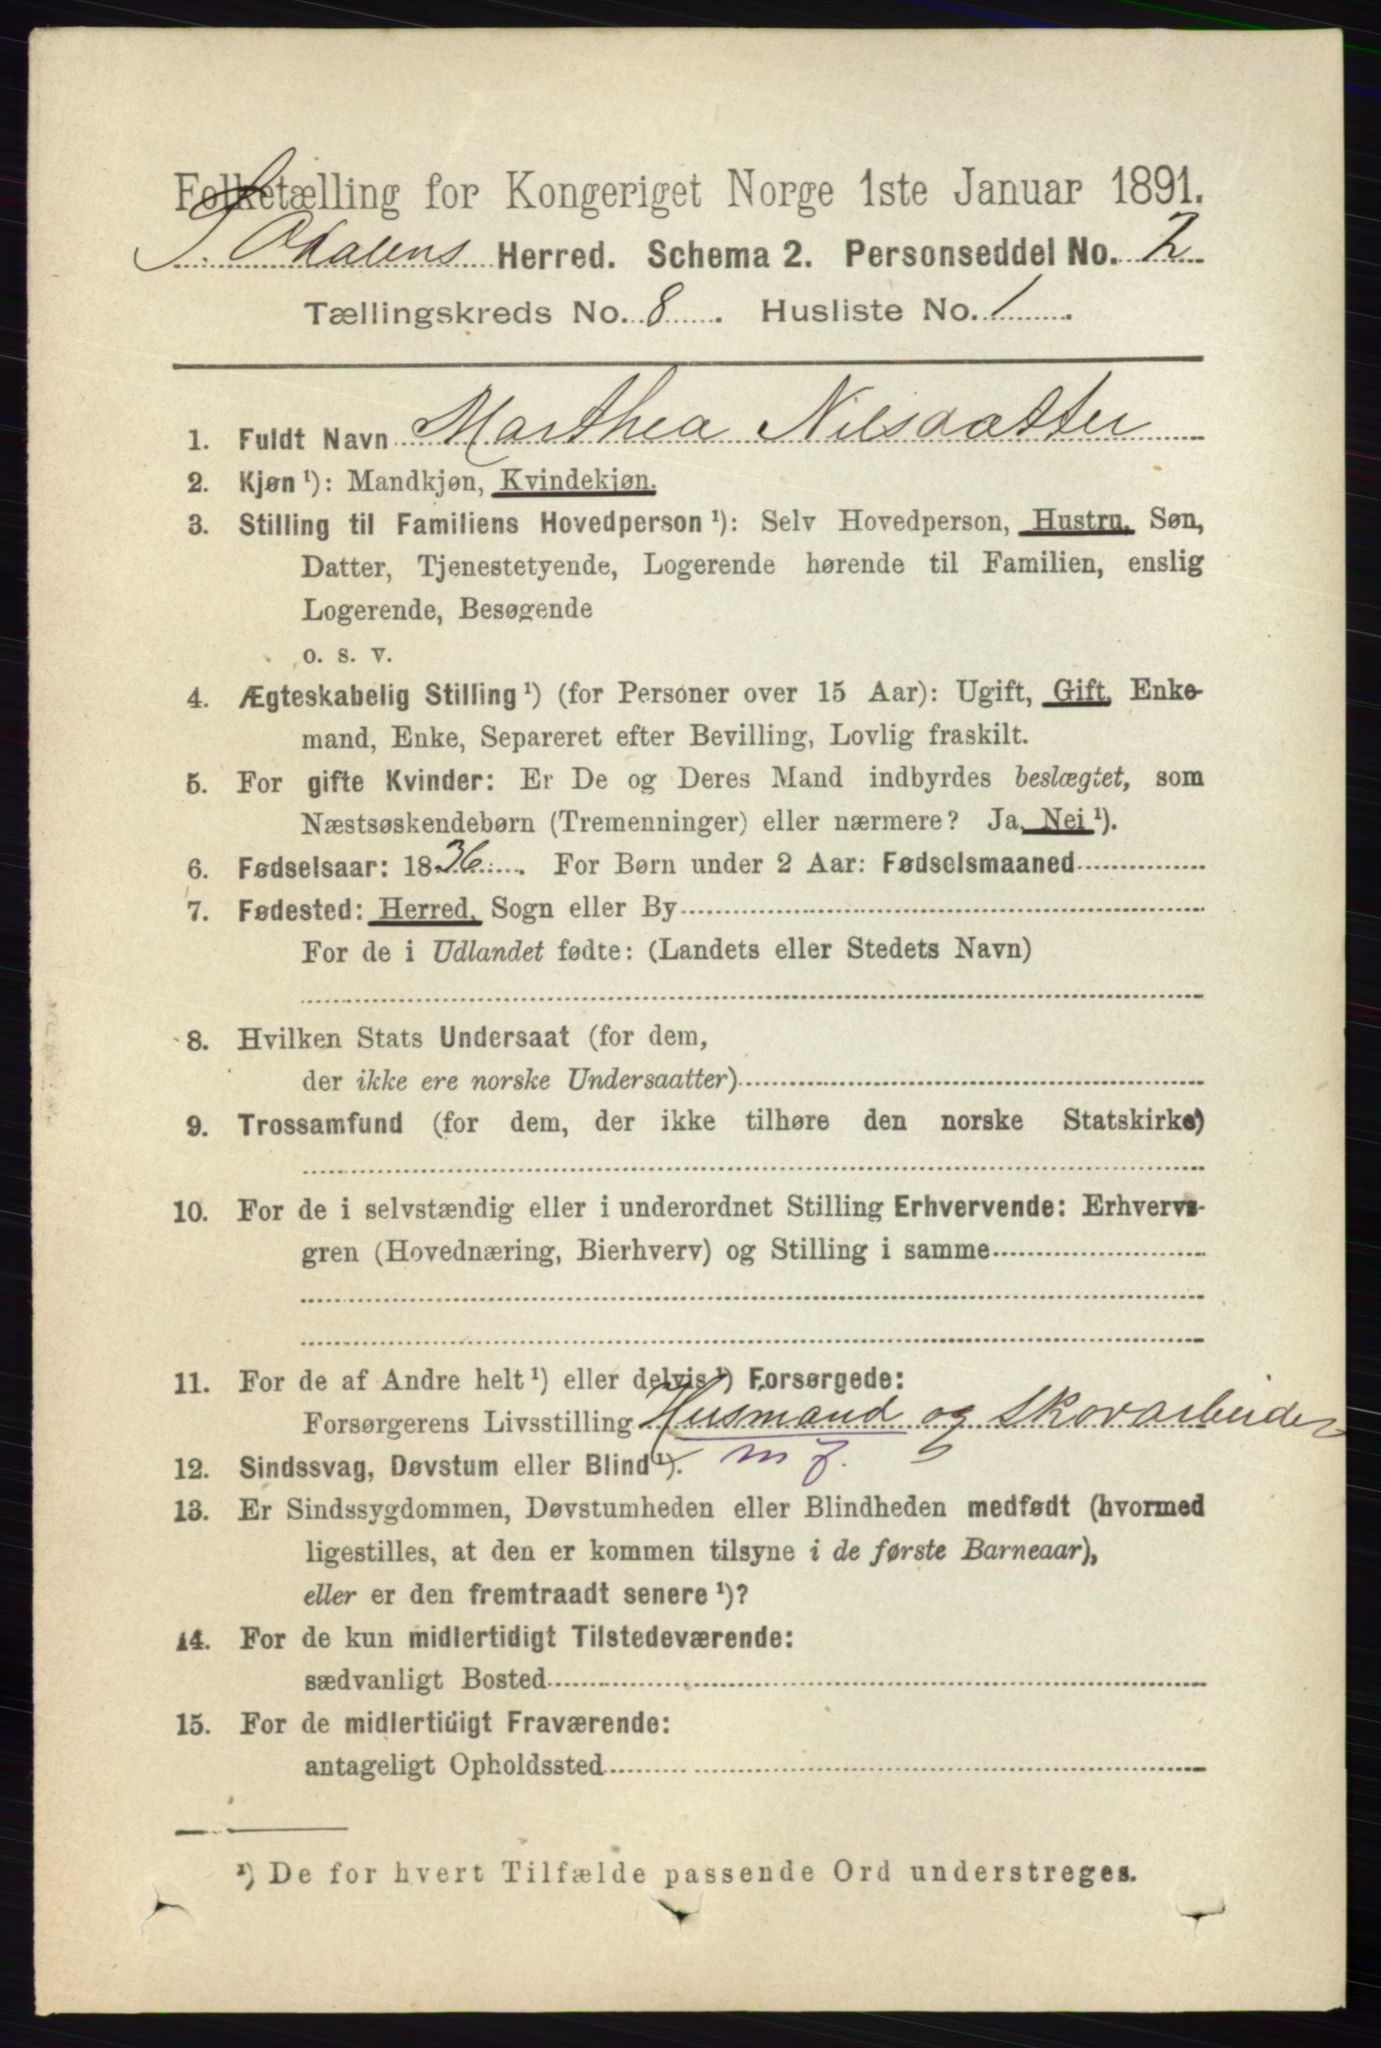 Folketælling for Kongeriget Norge 1ste Januar 1891.
S. Odalens Herred. Schema 2. Personseddel No. 2
Tællingskreds No. 8. Husliste No. 1.
1. Fuldt Navn Marthea Nilsdatter
2. Kjøn ¹): Mandkjøn, Kvindekjøn.
3. Stilling til Familiens Hovedperson ¹): Selv Hovedperson, Hustru, Søn,
Datter, Tjenestetyende, Logerende hørende til Familien, enslig
Logerende, Besøgende
o. s. v.
4. Ægteskabelig Stilling ¹) (for Personer over 15 Aar): Ugift, Gift, Enke-
mand, Enke, Separeret efter Bevilling, Lovlig fraskilt.
5. For gifte Kvinder: Er De og Deres Mand indbyrdes beslægtet, som
Næstsøskendebørn (Tremenninger) eller nærmere? Ja, Nei ¹).
6. Fødselsaar: 1836. For Børn under 2 Aar: Fødselsmaaned
7. Fødested: Herred, Sogn eller By
For de i Udlandet fødte: (Landets eller Stedets Navn)
8. Hvilken Stats Undersaat (for dem,
der ikke ere norske Undersaatter)
9. Trossamfund (for dem, der ikke tilhøre den norske Statskirke)
10. For de i selvstændig eller i underordnet Stilling Erhvervende: Erhvervs-
gren (Hovednæring, Bierhverv) og Stilling i samme
11. For de af Andre helt ¹) eller delvis ¹) Forsørgede:
Forsørgerens Livsstilling Husmand og Skovarbeider
12. Sindssvag, Døvstum eller Blind ¹). m j.
13. Er Sindssygdommen, Døvstumheden eller Blindheden medfødt (hvormed
ligestilles, at den er kommen tilsyne i de første Barneaar),
eller er den fremtraadt senere ¹)?
14. For de kun midlertidigt Tilstedeværende:
sædvanligt Bosted
15. For de midlertidigt Fraværende:
antageligt Opholdssted
¹) De for hvert Tilfælde passende Ord understreges.